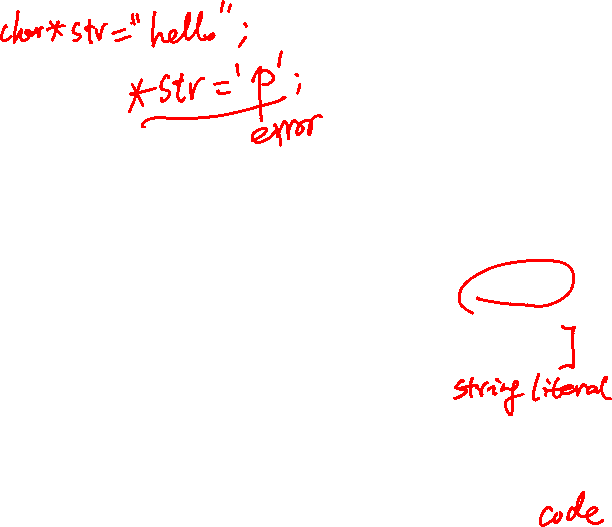 char*str="hello";
*str='p';
error
string literal
code